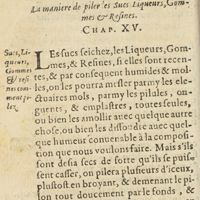 La maniere de piler les Sucs Liqueurs, Gom-
mes & Resines.
CHAP. XV.
Sucs, Li-
queurs,
Gommes
& resi-
nes com-
ment pi-
lez.
LEs sucs seichez, les Liqueurs, Gom-
mes, & Resines, si elles sont recen-
tes, & par consequent humides & mol-
les, on les pourra mesler parmy les ele-
ctuaires mols, parmy les pilules, on-
guents, & emplastres, toutes seules,
ou bien auec quelque autre semblable
chose, ou bien les dissoudre auec quel-
que humeur conuenable à la composi-
tion que nous voulons faire. Mais s'ils
sont desia secs de sorte qu'ils se puis-
sent casser, on pilera plusieurs d'iceux,
plustost en broyant, & demenant le pi-
lon tout doucement par le fonds, &